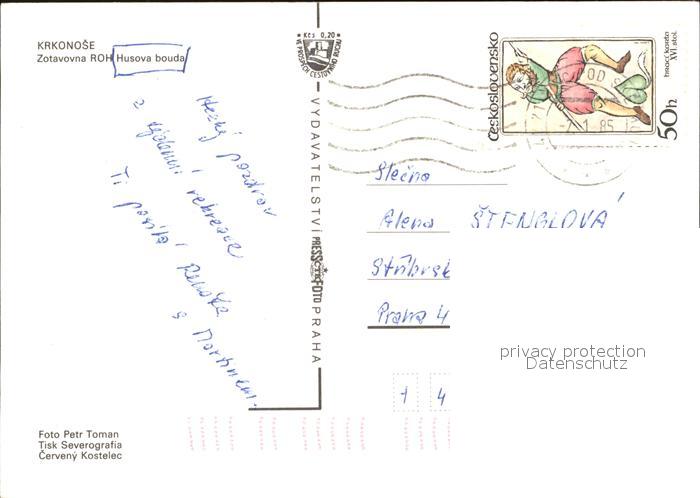 KRKONOŠE
Zotavovna ROH Husova bouda
Hezký pozdrav
z týdenní rekreace
Ti posílá Renáta
s Martinem.
Foto Petr Toman
Tisk Severografia
Červený Kostelec
Kčs 0,20
VE PROSPĚCH CESTOVNÍHO RUCHU
VYDAVATELSTVÍ PRESSFOTO PRAHA
Československo
hrací karta
XVI. stol.
50h
85
Slečna
Alena ŠTENGLOVÁ
Stříbrsk
Praha 4
1 4
privacy protection
Datenschutz